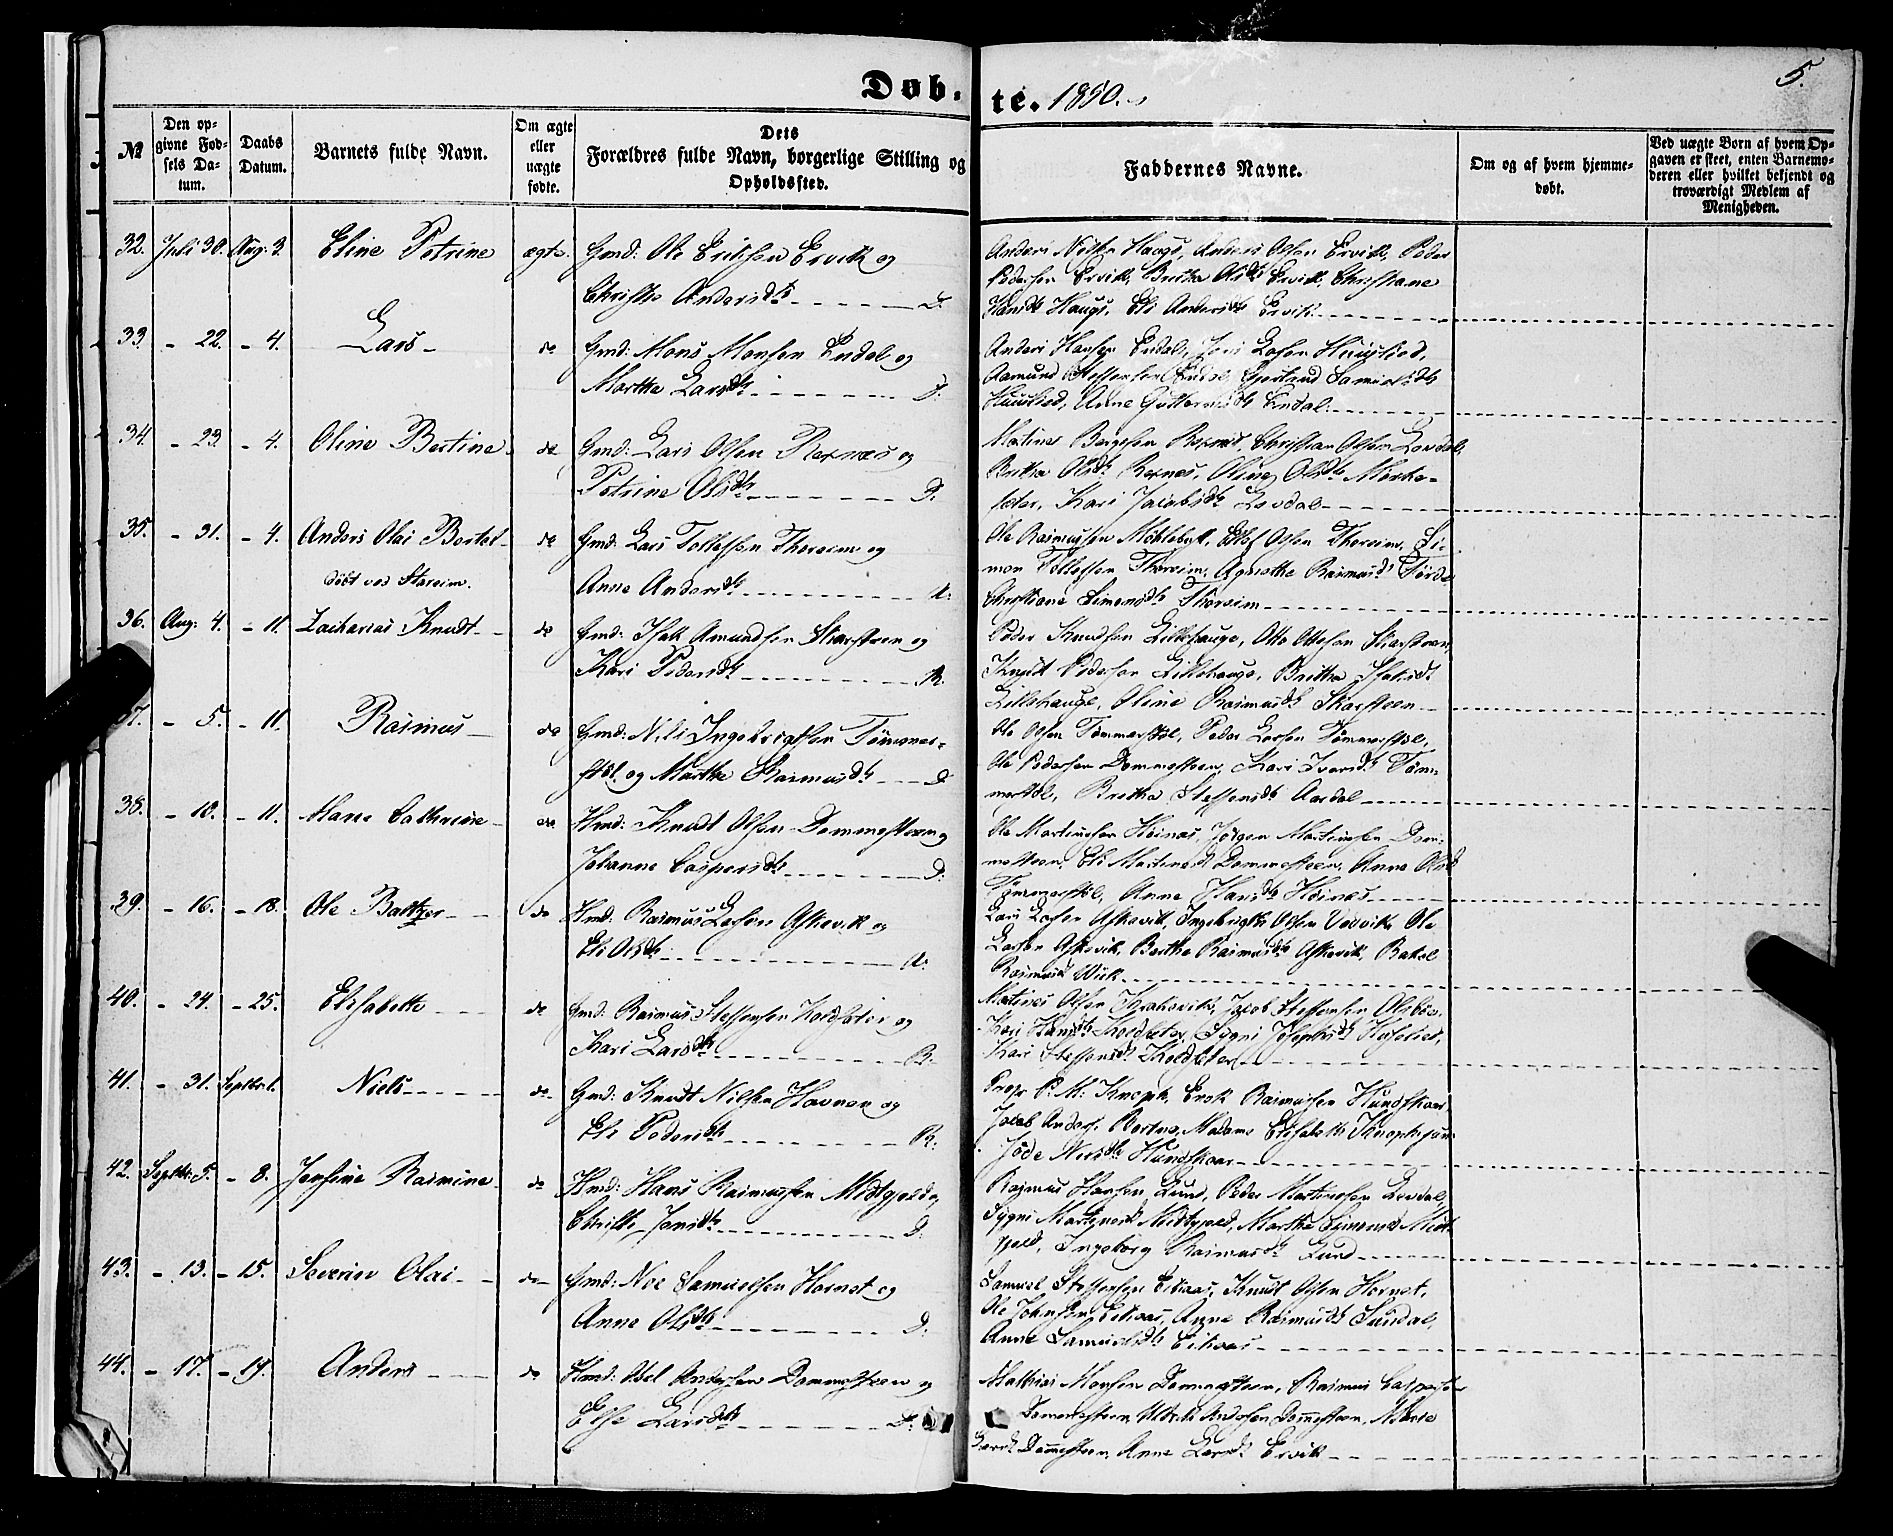 Døb-te. 1850.
5.
№
Den opgivne Fødsels Datum.
Daabs Datum.
Barnets fulde Navn.
Om ægte eller uægte fødte.
Dets Forældres fulde Navn, borgerlige Stilling og Opholdssted.
Faddernes Navne.
Om og af hvem hjemmedøbt.
Ved uægte Børn af hvem Opgaven er skeet, enten Barnemoderen eller hvilket bekjendt og troværdigt Medlem af Menigheden.
32. Juli 30. Aug: 3. Eline Petrine ægte. Gmd: Ole Eriksen Ervik og
Christie Andersdtr D.
Anders Olsen Ervik, Peder
Pedersen Ervik, Brithe Olsdtr Ervik, Christiane
Hansdtr Hauge, Eli Andersdtr Ervik
33. - 22. - 4. Lars do Gmd: Mons Monsen Endal og
Marthe Larsdtr D.
Anders Hansen Endal,
Aamund Steffensen Endal, Gjertrud Samuelsdtr
Anne Guttormsdtr Endal.
34. - 23. - 4. Oline Bertine do Gmd: Lars Olsen Refnes og
Petrine Olsdtr D.
Martinus Børgesen Refnes, Christian Olsen Levdal,
Brithe Olsdtr Refnes, Oline Olsdtr Morke-
seter, Kari Jacobsdtr Levdal
35. - 31. - 4. Anders Olai Bertel do Gmd: Lars Tollefsen Thoreim og
døbt ved Stareim. Anne Andersdtr
Ole Rasmussen Olsen Thoreim, Si-
mon Tollefsen Thoreim, Agnethe Rasmusdtr Førde
Christiane Simonsdtr Thoreim
36. Aug: 4. - 11. Zacharias Knudt do Gmd: Isak Amundsen Skarsteen og
Kari Pedersdtr R.
Peder Knudsen Lillehauge, Otto Ottesen Skarsteen,
Knudt Pedersen Lillehauge, Brithe Isaksdtr
Lillehauge, Oline Rasmusdtr Skarsteen
37. - 5. - 11. Rasmus do Gmd: Nils Ingebrigtsen Tømmer-
støl og Marthe Rasmusdtr D.
Ole Olsen Tømmerstøl, Peder Larsen Tømmerstøl,
Ole Pedersen Dommesteen, Kari Iversdtr Tøm-
merstøl, Brithe Steffensdtr Aardal
38. - 10. - 11. Mane Cathrine do Hmd: Knudt Olsen Dommesteen og
Johanne Caspersdtr D.
Ole Martinsen Heinæs, Jørgen Martinsen Dom-
mesteen, Eli Martinsdtr Dommesteen, Anne Olsdtr
Tømmerstøl, Anne Hansdtr Heinæs
39. - 16. - 18. Ole Baltzer do Hmd: Rasmus Larsen Askevik og
Eli Olsdtr
Lars Larsen Askevik, Ingebrigt Olsen Vedvik, Ole
Larsen Askevik, Berthe Rasmusdtr Askevik, Rakel
Rasmusdtr Wiik
40. - 24. - 25. Elisabeth do Gmd: Rasmus Steffensen Koldseter og
Kari Larsdtr R.
Martinus Olsen Krakevik, Jacob Steffensen
Kari Hansdtr Koldseter, Sygni Josephsdtr
Kari Steffensdtr Koldseter
41. - 31. Septbr 1. Niels do Gmd: Knudt Nilsen Havnen og
Eli Pedersdtr R.
Propr. P. M. Knoph, Enok Rasmussen Hundskaar,
Jacob Anders. Madame Elisabeth Knoph
Jøde Nilsdtr Hundskaar
42. Septbr: 5. - 8. Jensine Rasmine do Hmd: Hans Rasmussen Midtgjeld og
Christie Jensdtr D.
Rasmus Hansen Lund, Peder Martinsen Levdal,
Sygni Martinsdtr Midtgjeld, Marthe Simonsdtr Midt
gjeld, Ingeborg Rasmusdtr Lund
43. - 13. - 15. Severin Olai do Gmd: Noe Samuelsen Hornet og
Anne Olsdtr D.
Samuel Steffensen Eikaas, Knudt Olsen Hornet,
Ole Johnsen Eikaas, Anne Rasmusdtr Sundal,
Anne Samuelsdtr Eikaas
44. - 17. - 19. Anders do Hmd: Abel Andersen Dommesteen og
Else Larsdtr D.
Mathias Monsen Dommesteen, Rasmus Caspersen
Dommesteen, Andersen Dommesteen, Marie
Dommesteen, Anne Larsdtr Ervik